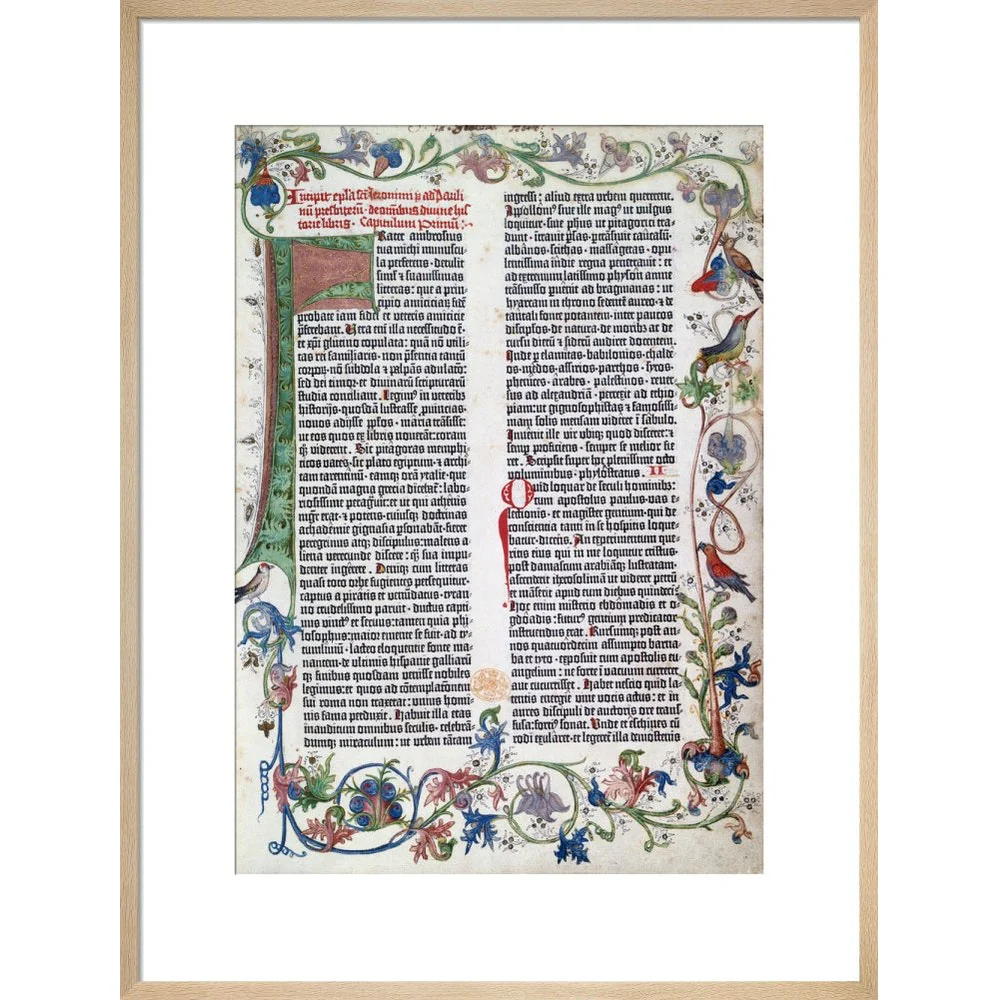 Incipit epistola sancti Jeronimi p̄ ad Pauli
nū presbiterū · de omnibus divine his
torie libris · Capitulum Primū:
Frater ambrosius
tua michi munuscu
la perferens · detulit
simĺ ⁊ suavissimas
litteras: que a prin
cipio amiciciaȝ fidē
probate iam fidei ⁊ veteris amicicie
p̄ferebant. Vera enī illa necessitudo ē·
et xp̄i glutino copulata: quā nō utili-
tas rei familiaris · nō p̄sentia tantū
corpoȝ · nō subdola ⁊ palpās adulacō:
sed dei timor · et divinaȝ scripturarū
studia conciliant. Legimꝰ in veterib
historijs · quosdā lustrasse ꝓvincias ·
novos adijsse ppłos · maria trāsisse:
ut eos quos ex libris noverāt: coram
qꝫ viderent. Sic pitagoras memphi-
ticos vates · sic plato egiptum · ⁊ archi-
tam tarentinū · eamqꝫ orā ytalie · que
quondā magna grecia dicebat̃: labo-
riosissime peragravit: et ut qui athenis
mgr̄ erat · ⁊ potens · cuiusqꝫ doctrinas
achademie gignasia ꝑsonabāt · fieret
peregrinus atqꝫ discipulus: malens a-
liena verecunde discere: qꝫ sua impu-
denter ingerere. Deniqꝫ cum litteras
quasi toto orbe fugientes persequitur ·
captus a piratis et venūdatus · tyran-
no crudelissimo paruit · ductus capti-
vus vinctꝰ et servus: tamen quia phi-
losophus: maior emente se fuit · ad ty-
tumliviū · lacteo eloquentie fonte ma-
nantem · de ultimis hispanie galliarū
qꝫ finibus quosdam venisse nobiles
legimus: et quos ad cōtemplacōnem
sui roma non traxerat: unius homi-
nis fama perduxit. Habuit illa etas
inauditum omnibus seculis · celebrā-
dumqꝫ miraculum: ut urbem tātam
ingressi: aliud extra urbem quererent.
Appollonꝰ sive ille magꝰ ut vulgus
loquitur · sive phūs ut pitagorici tra-
dunt · ītravit p̄sas · ꝑtrāsivit caucasū ·
albānos · scithas · massagetas · opu-
lentissima indie regna penetravit: et
ad extremum latissimo physon amne
trāsmisso ꝑvenit ad bragmanas: ut
hyarcam in throno sedentē aureo · ⁊ de
tantali fonte potantem · inter paucos
discipłos · de natura · de moribꝫ ac de
cursu dierū ⁊ siderū audiret docentem.
Inde ꝑ elamitas · babilonios · chalde-
os · medos · assirios · parthos · syros ·
phenices · arabes · palestinos · rever-
sus ad alexandriā · perrexit ad ethio-
piam: ut gignosophistas ⁊ famosissi-
mam solis mensam videret ī sabulo.
Invenit ille vir ubiqꝫ quod disceret: ⁊
semꝑ proficiens · semper se melior fie-
ret. Scripsit super hoc plenissime octo
voluminibus · phylostratus. II
Quid loquar de seculi hominibꝫ:
cum apostolus paulus · vas e-
lectionis · et magister gentium · qui de
conscientia tanti in se hospitis loque-
batur · dicens. An experimentum que-
ritis eius qui in me loquitur cristus ·
post damascum arabiāqꝫ lustratam ·
ascenderit iherosolimā ut videret petrū
et māserit apud eum diebus quindecī.
Hoc enim misterio ebdōmadis et o-
gdōadis: futurꝰ gentium predicator
instruendus erat. Rursumqꝫ post an-
nos quatuordecim assumpto barna-
ba et tyto · exposuit cum apostolis e-
vangelium: ne forte ī vacuum curreret
aut cucurrisset. Habet nescio quid la-
tentis energie vive vocis actus: et in
aures discipuli de auctoris ore trans-
fusa: fortiꝰ sonat. Unde et eschines cū
rodi exularet · et legeret̃ illa demostenis